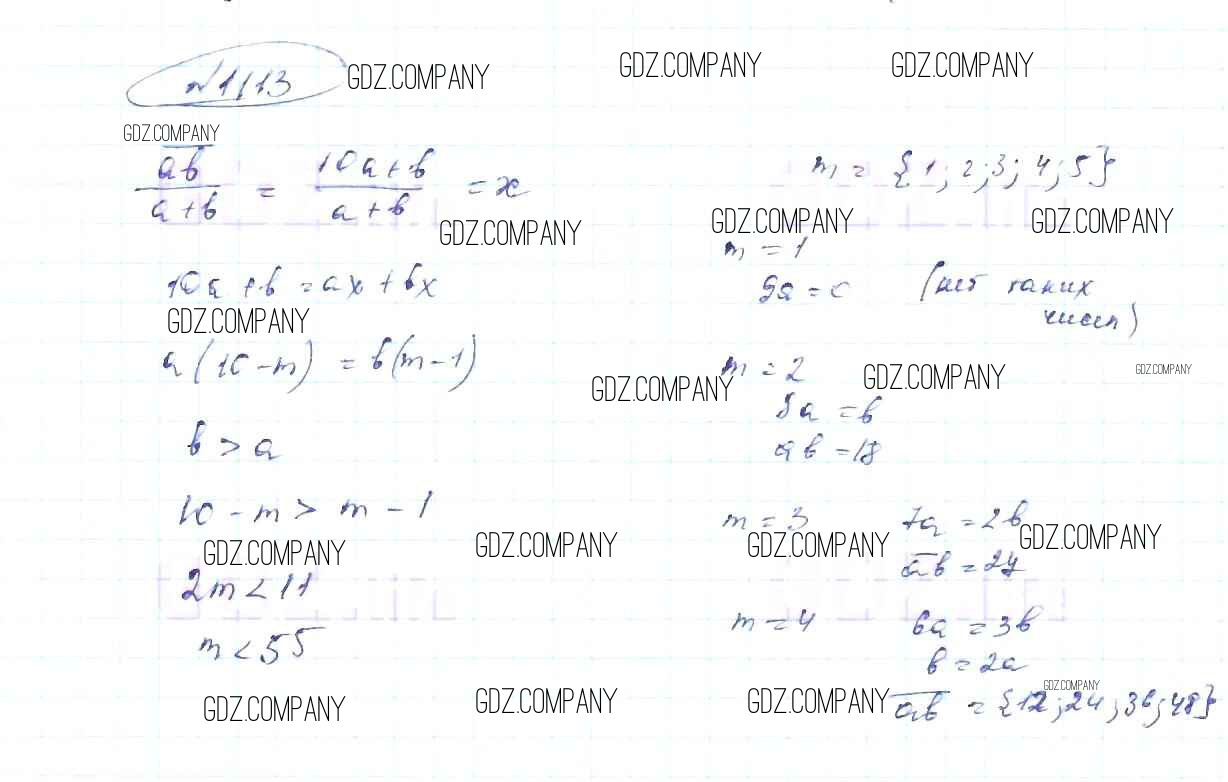 №1113 GDZ.COMPANY GDZ.COMPANY GDZ.COMPANY
GDZ.COMPANY
ab/(a+b) = (10a+b)/(a+b) = x
GDZ.COMPANY
10a+b=ax+bx
GDZ.COMPANY
a(10-m) = b(m-1)
b>a
10-m>m-1
GDZ.COMPANY GDZ.COMPANY
2m<11
m<55
GDZ.COMPANY GDZ.COMPANY
m={1;2;3;4;5}
GDZ.COMPANY GDZ.COMPANY
m=1
9a=0 (нет таких
чисел)
m=2
GDZ.COMPANY GDZ.COMPANY GDZ.COMPANY
8a=b
ab=18
m=3 7a=2b
GDZ.COMPANY GDZ.COMPANY
ab=27
m=4 6a=3b
b=2a
GDZ.COMPANY
GDZ.COMPANY ab={12;24;36;48}